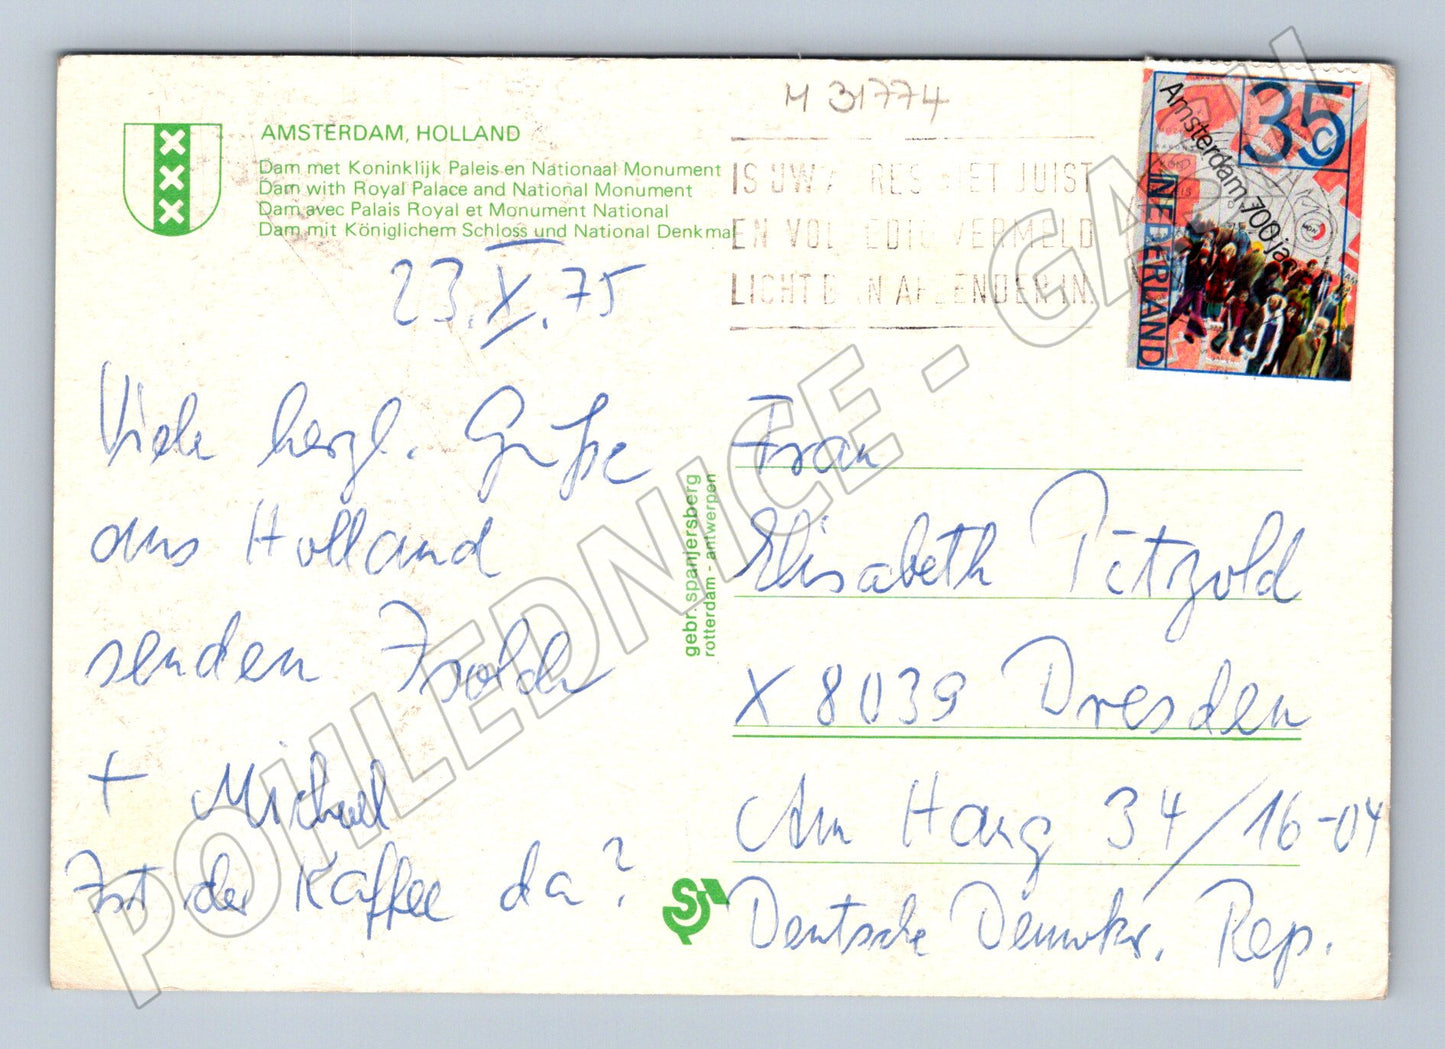 M 31774
AMSTERDAM, HOLLAND
Dam met Koninklijk Paleis en Nationaal Monument
Dam with Royal Palace and National Monument
Dam avec Palais Royal et Monument National
Dam mit Königlichem Schloss und National Denkmal
IS UW ADRES NIET JUIST
EN VOLLEDIG VERMELD
LICHT DAN AFZENDER IN
35c
Amsterdam 700 jaar
NEDERLAND
23. X. 75
Viele herzl. Grüße
aus Holland
senden
+ Michael
Ist der Kaffee da?
gebr. spanjersberg
rotterdam - antwerpen
Frau
Elisabeth Pätzold
X 8039 Dresden
Am Hang 34/16-04
Deutsche Demokr. Rep.
POHLEDNICE - GARAH